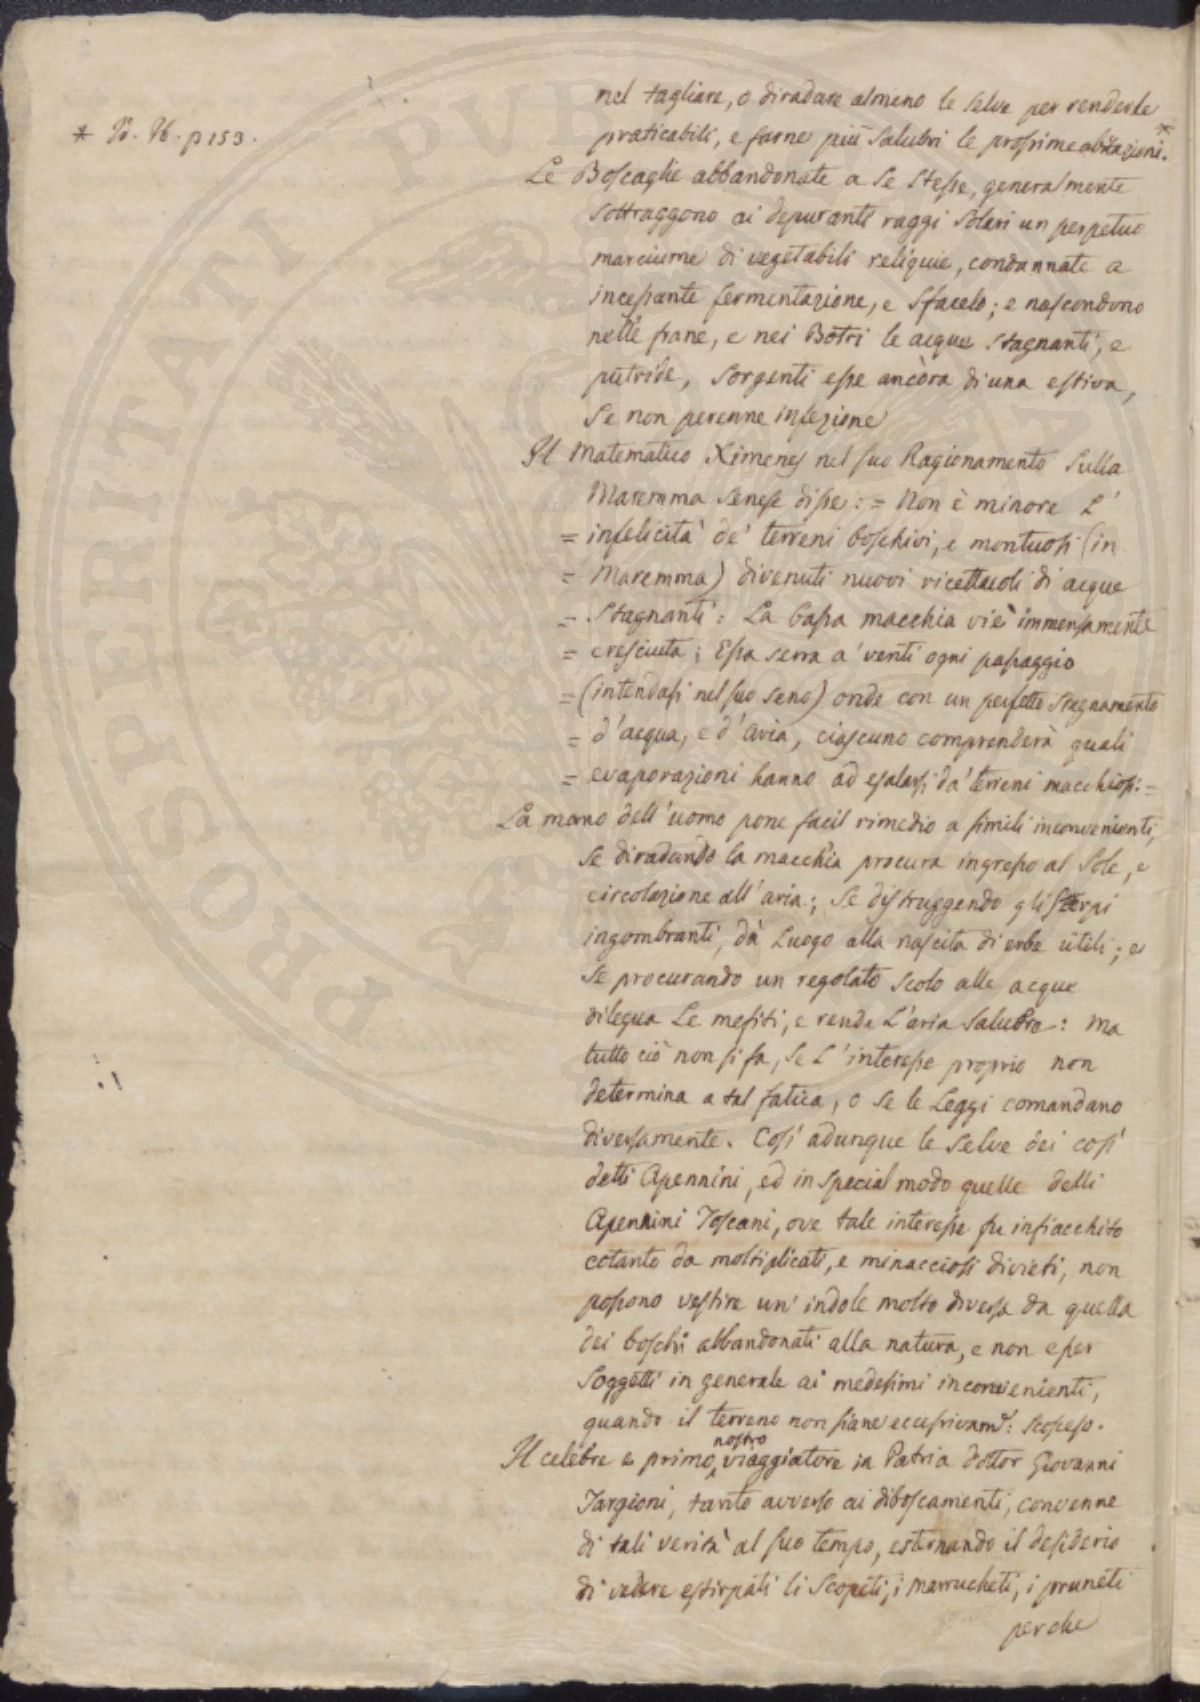 * B. H. p 153.
nel tagliare, o diradare almeno le selve per renderle
praticabili, e farne più salubri le prossime abitazioni.*
Le Boscaglie abbandonate a se stesse, generalmente
sottraggono ai depuranti raggi solari un perpetuo
marciume di vegetabili reliquie, condannate a
incessante fermentazione, e sfacelo; e nascondono
nelle frane, e nei Botri le acque stagnanti, e
putride, sorgenti esse ancòra di una estiva,
se non perenne infezione
Il Matematico Ximenes nel suo Ragionamento sulla
Maremma senese disse: = Non è minore l'
= infelicità de' terreni boschivi, e montuosi (in
= Maremma) divenuti nuovi ricettacoli di acque
= stagnanti: La bassa macchia vi è immensamente
= cresciuta; Essa serra a' venti ogni passaggio
= (intendasi nel suo seno) onde con un perfetto stagnamento
= d'acqua, e d'aria, ciascuno comprenderà quali
= evaporazioni hanno ad esalarsi da' terreni macchiosi: =
La mano dell'uomo pone facil rimedio a simili inconvenienti,
se diradando la macchia procura ingresso al Sole, e
circolazione all'aria; se distruggendo gli sterpi
ingombranti, dà luogo alla nascita di erbe utili; e
se procurando un regolato scolo alle acque
dilegua le mefiti, e rende l'aria salubre: Ma
tutto ciò non si fa, se l'interesse proprio non
determina a tal fatica, o se le Leggi comandano
diversamente. Così adunque le selve dei così
detti Apennini, ed in special modo quelle delli
Apennini Toscani, ove tale interesse fu infiacchito
cotanto da moltiplicati, e minacciosi divieti, non
possono vestire un' indole molto diversa da quella
dei boschi abbandonati alla natura, e non esser
soggetti in generale ai medesimi inconvenienti,
quando il terreno non siane eccessivamᵉ: scosceso.
Il celebre e primo nostro viaggiatore in Patria dottor Giovanni
Targioni, tanto avverso ai diboscamenti, convenne
di tali verità al suo tempo, esternando il desiderio
di vedere estirpati li scopeti, i marrucheti, i pruneti
perche
PROSPERITATI PUBLICAE